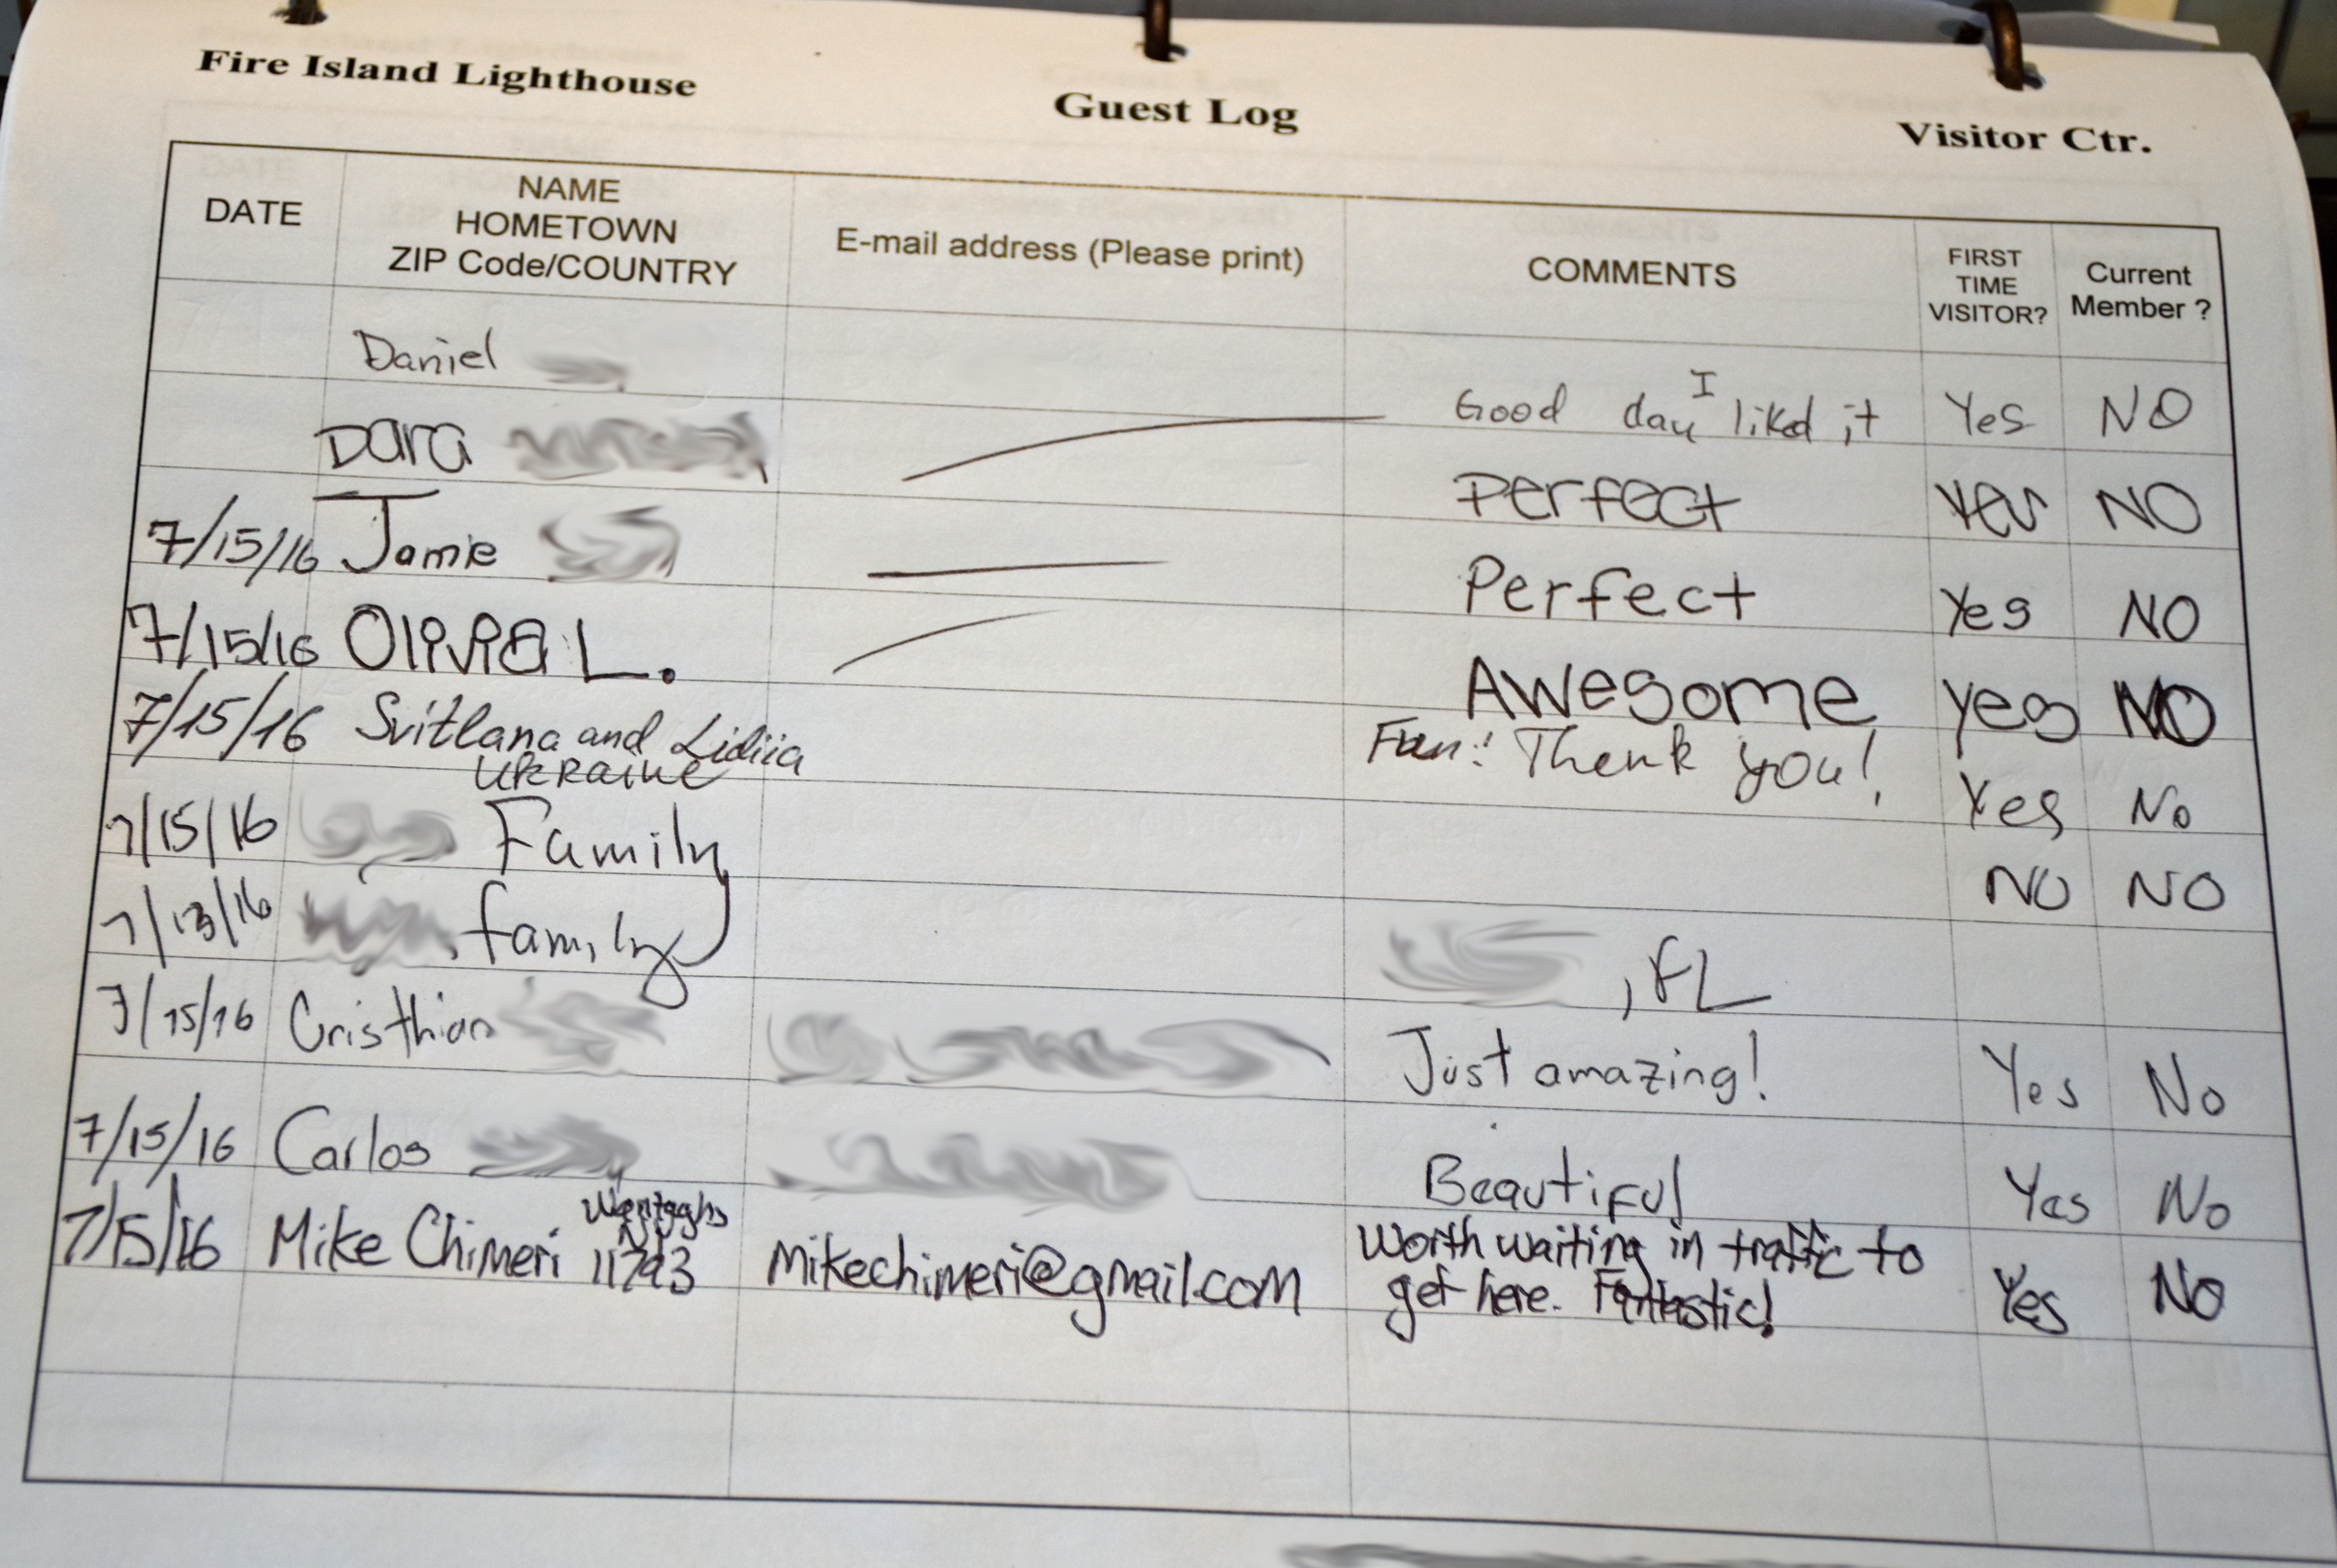 Fire Island Lighthouse Guest Log Visitor Ctr.
DATE
NAME
HOMETOWN
ZIP Code/COUNTRY
E-mail address (Please print)
COMMENTS
FIRST
TIME
VISITOR?
Current
Member ?
Daniel Good day I liked it Yes NO
Dara Perfect Yes NO
7/15/16 Jamie Perfect Yes NO
7/15/16 Olivia L. Awesome yes NO
7/15/16 Svitlana and Lidiia Fun! Thank you! Yes No
UKRAINE
7/15/16 Family NO NO
7/13/16 family , FL
7/15/16 Cristhian Just amazing! Yes No
7/15/16 Carlos Beautiful Yes No
7/15/16 Mike Chimeri Wantaghs NY 11793 Mikechimeri@gmail.com Worth waiting in traffic to
get here. Fantastic! Yes No